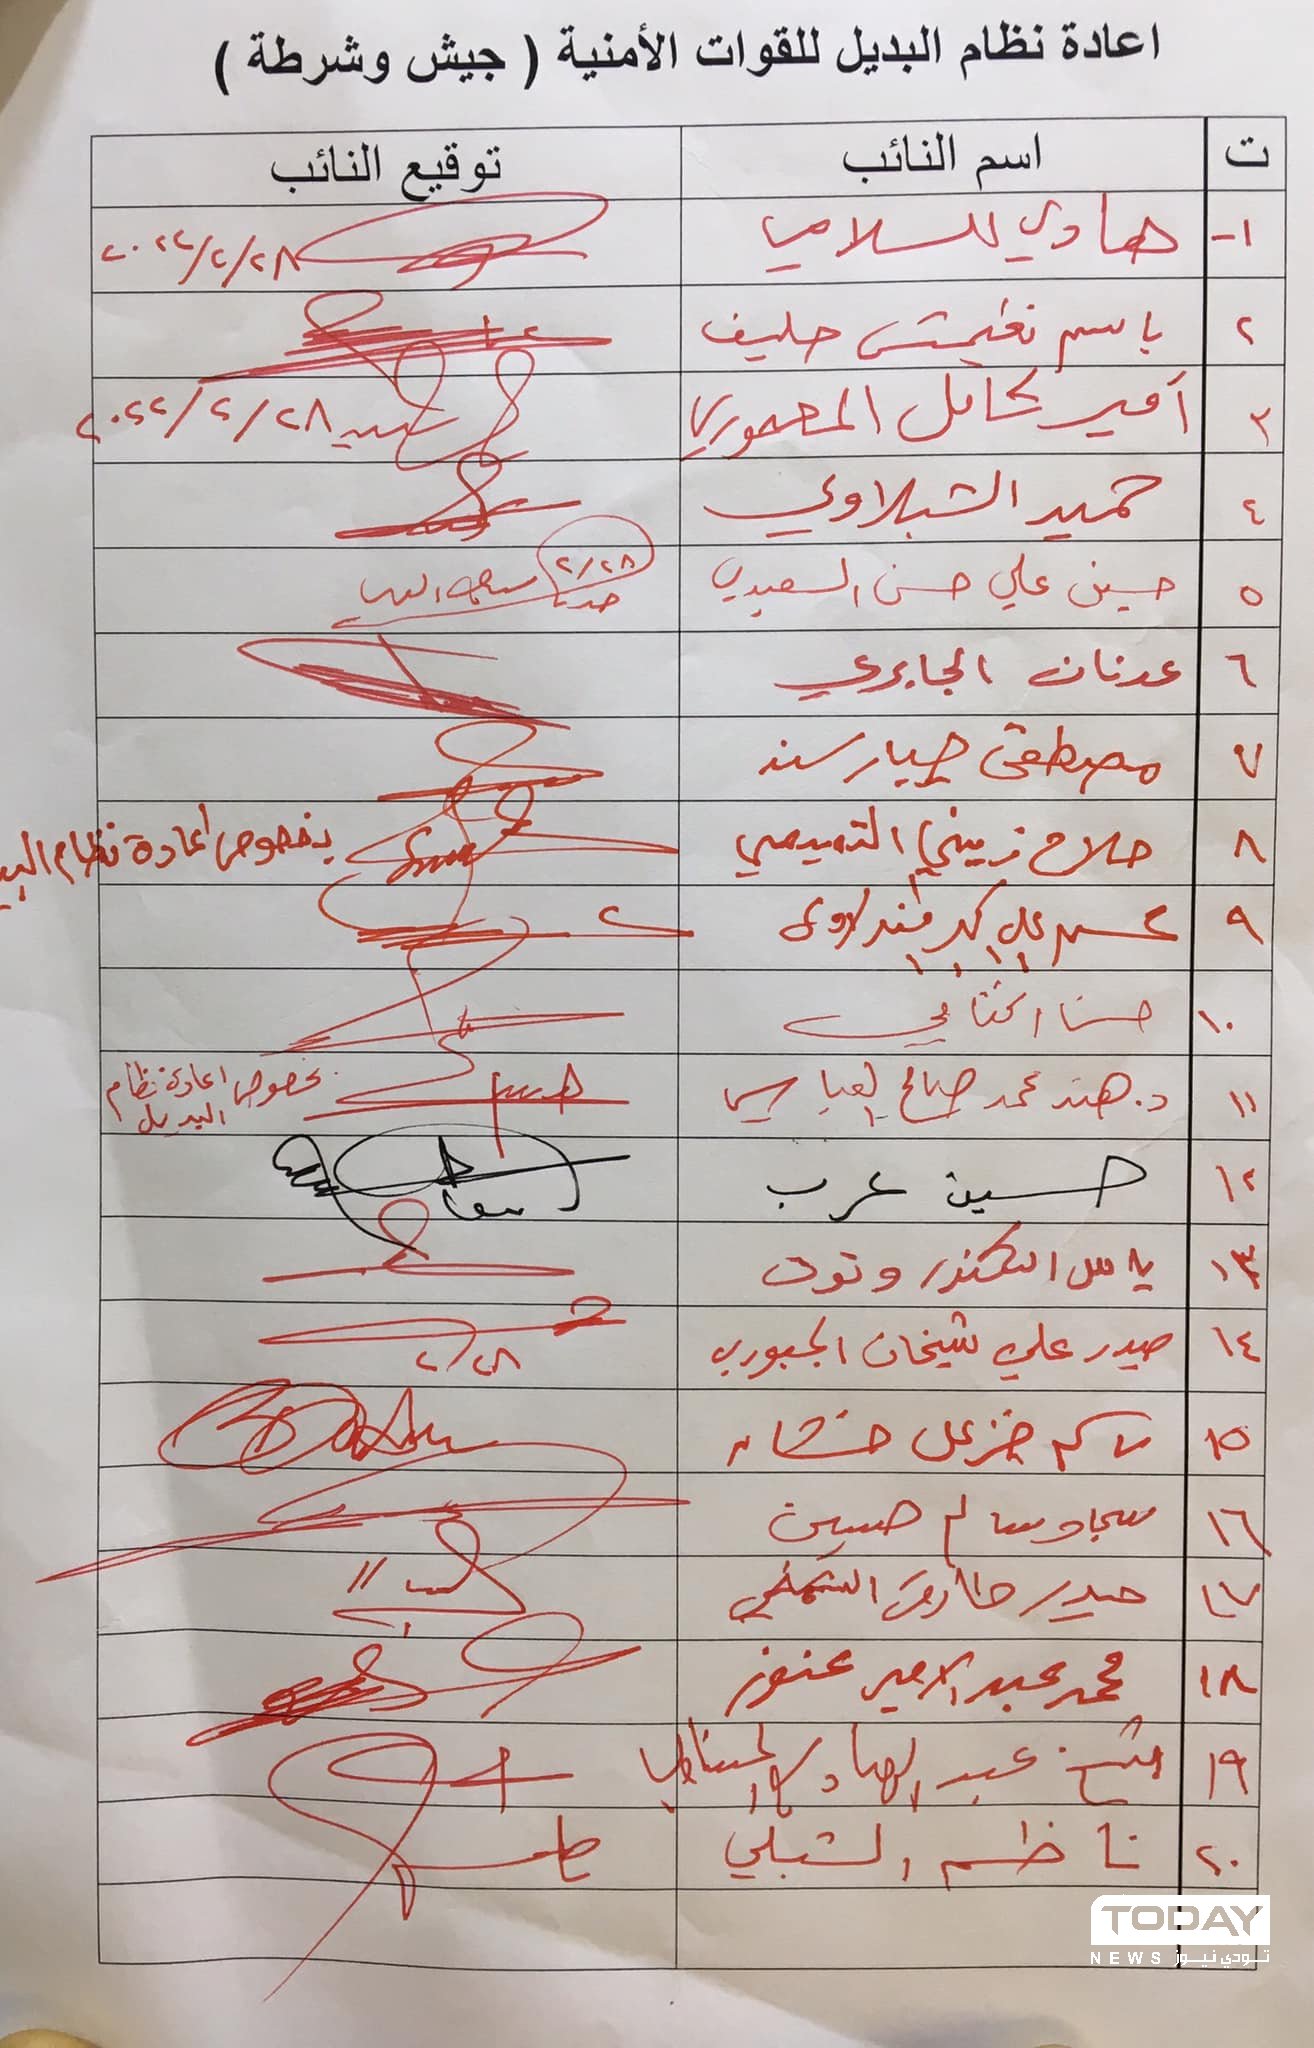 اعادة نظام البديل للقوات الأمنية ( جيش وشرطة )
ت اسم النائب توقيع النائب
١- هادي السلامي ٢٠٢٢/٢/٢٨
٢ باسم نغيمش
٣ أمير كامل المعموري ٢٠٢٢/٢/٢٨
٤ حميد الشبلاوي
٥ حسين علي حسن السعيدي ٢/٢٨
٦ عدنان الجابري
٧ مصطفى جبار سند
٨ فلاح زيني التميمي بخصوص اعادة نظام
٩
١٠
١١ د. هند محمد صالح العباسي بخصوص اعادة نظام
البديل
١٢ حسين عرب
١٣ ياسر اسكندر وتوت
١٤ حيدر علي شيخان الجبوري ٢/٢٨
١٥ خزعل
١٦ سجاد سالم حسين
١٧ حيدر طارق
١٨ محمد عبد الامير عنوز
١٩ عبد الهادي
٢٠ ناظم الشبلي
TODAY
NEWS تودي نيوز